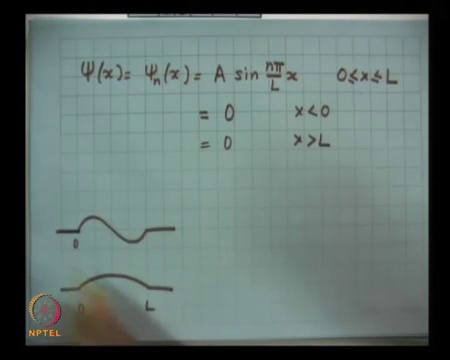 Ψ(x) = Ψₙ(x) = A sin nπ/L x 0≤x≤L
= 0 x<0
= 0 x>L
0
0 L
NPTEL